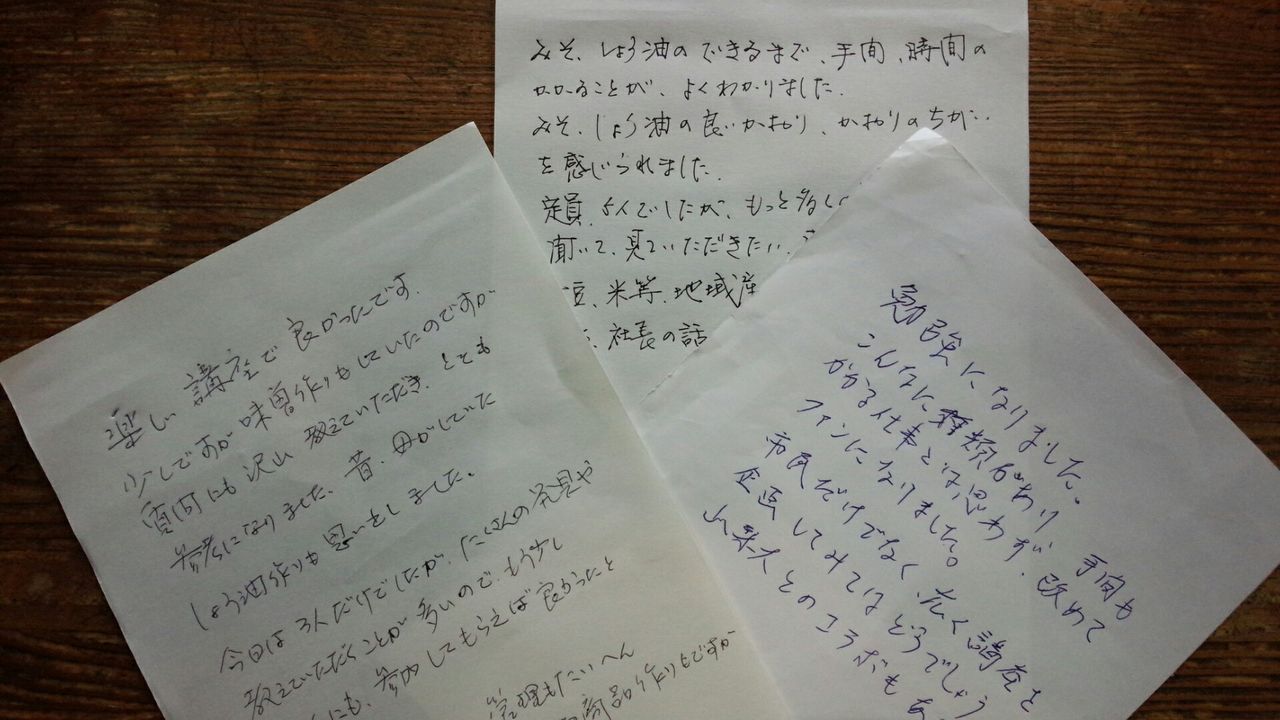 みそ、しょう油のできるまで、手間、時間の
かかることが、よくわかりました。
みそ、しょう油の良いかおり、かおりのちがい
を感じられました。
定員、でしたが、もっと多く
聞いて、見ていただきたい、
豆、米等、地域産
社長の話
楽しい講座で良かったです。
少しですが味噌作りもしていたのですが
質問にも沢山教えていただき、とても
参考になりました。昔、母がしていた
しょう油作りも思い出しました。
今回は3人だけでしたが、たくさんの発見や
教えていただくことが多いので、もう少し
にも、参加してもらえば良かったと
管理もたいへん
商品作りもですが
勉強になりました。
こんなに種類があり、手間も
かかる仕事とは思わず、改めて
ファンになりました。
市民だけでなく、広く講座を
企画してみてはどうでしょう
山梨大とのコラボもあ